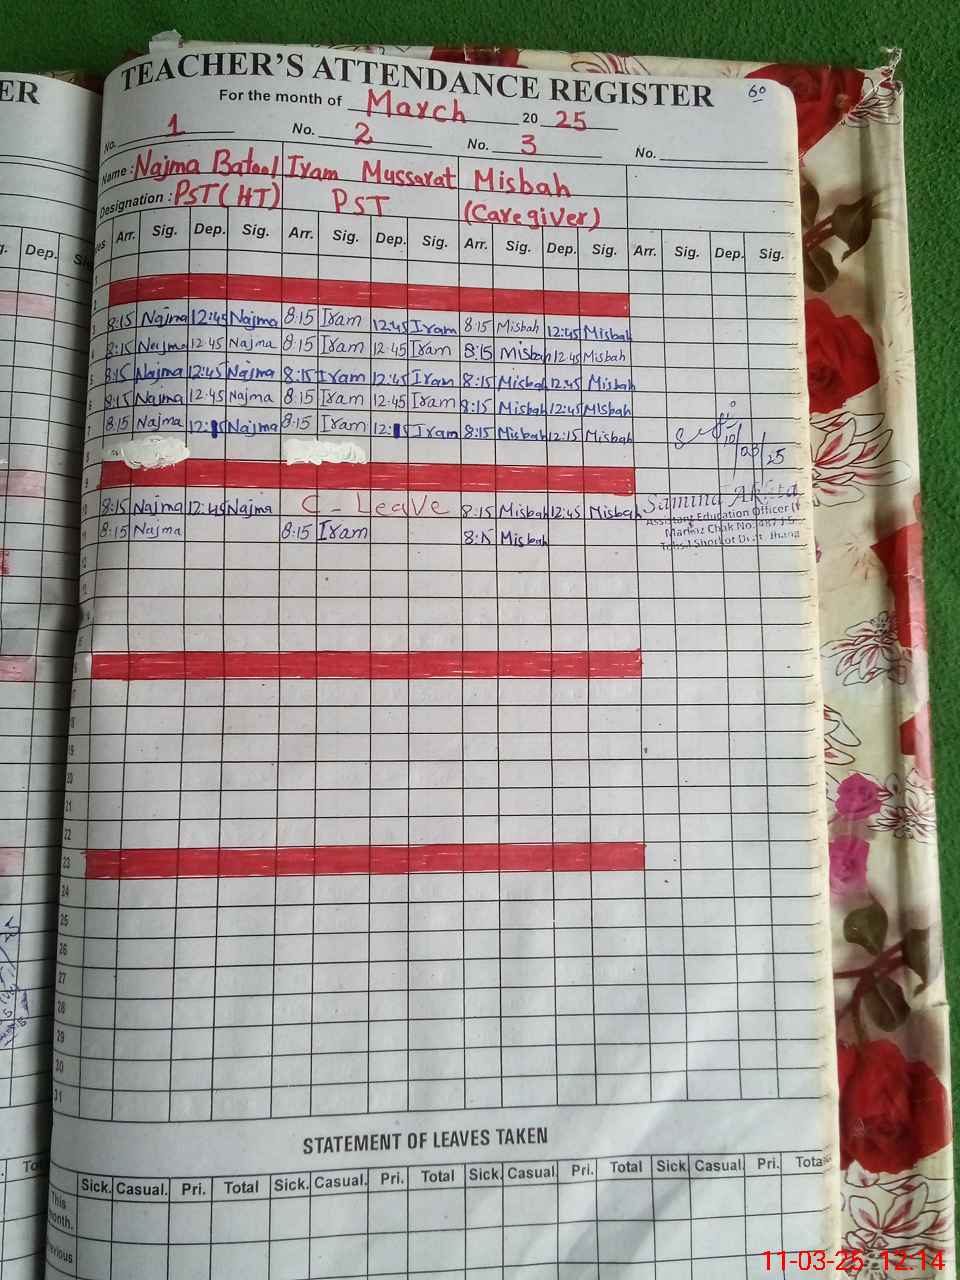 ER
TEACHER'S ATTENDANCE REGISTER 60
For the month of March 20 25
No. 1 No. 2 No. 3 No.
Name : Najma Batool Iram Mussarat Misbah
Designation : PST (HT) PST (Caregiver)
Dep. Arr. Sig. Dep. Sig. Arr. Sig. Dep. Sig. Arr. Sig. Dep. Sig. Arr. Sig. Dep. Sig.
2
3 8:15 Najma 12:45 Najma 8:15 Iram 12:45 Iram 8:15 Misbah 12:45 Misbah
4 8:15 Najma 12:45 Najma 8:15 Iram 12:45 Iram 8:15 Misbah 12:45 Misbah
5 8:15 Najma 12:45 Najma 8:15 Iram 12:45 Iram 8:15 Misbah 12:45 Misbah
6 8:15 Najma 12:45 Najma 8:15 Iram 12:45 Iram 8:15 Misbah 12:45 Misbah
7 8:15 Najma 12:15 Najma 8:15 Iram 12:15 Iram 8:15 Misbah 12:15 Misbah
8
9
10 8:15 Najma 12:45 Najma C - Leave 8:15 Misbah 12:45 Misbah
11 8:15 Najma 8:15 Iram 8:15 Misbah
10/03/25
Samina
Assistant Education Officer
Markaz Chak No. 487 J.B
Tehsil Shorkot Distt. Jhang
12
13
17
18
19
20
21
22
23
24
25
26
27
28
29
30
31
STATEMENT OF LEAVES TAKEN
Sick. Casual. Pri. Total Sick. Casual. Pri. Total Sick. Casual. Pri. Total Sick. Casual. Pri. Total
This month.
Previous
11-03-25 12:14